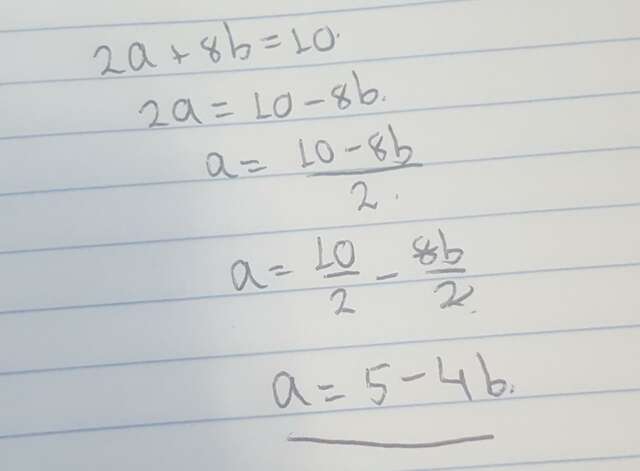 2a + 8b = 10.
2a = 10 - 8b.
a = (10 - 8b)/2.
a = 10/2 - 8b/2.
a = 5 - 4b.